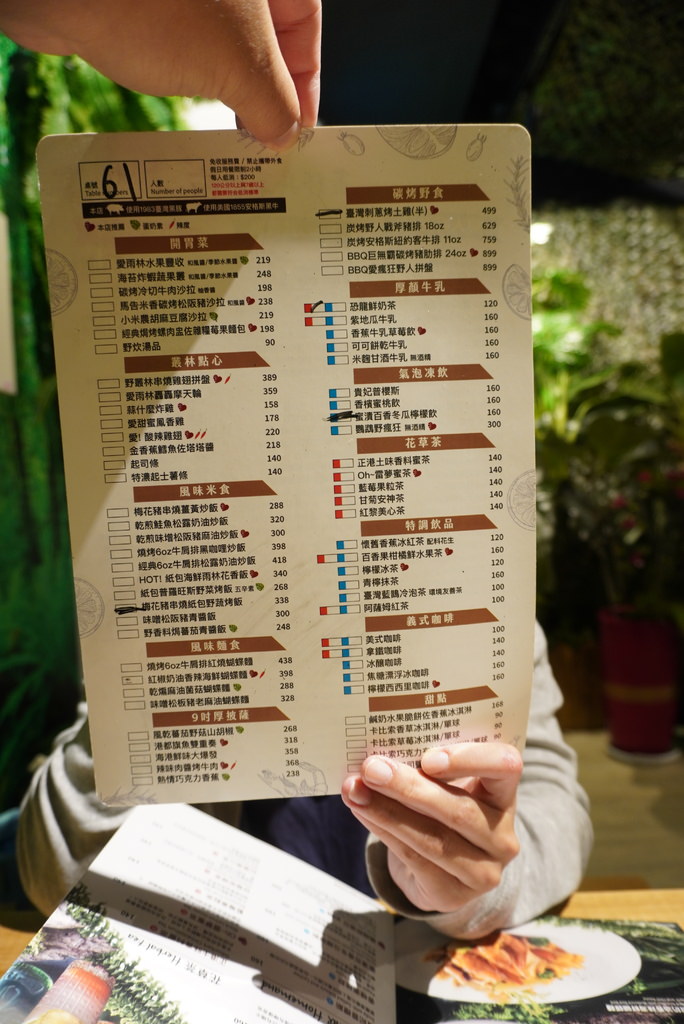 桌號
Table
61
人數
Number of people
免收服務費 / 禁止攜帶外食
假日用餐限制2小時
每人低消：$200
本店 使用1983臺灣黑豚 使用美國1855安格斯黑牛
本店推薦 蛋奶素 / 辣度
開胃菜
愛雨林水果豐收 和風醬/季節水果醬 219
海苔炸蝦蔬果叢 和風醬/季節水果醬 248
碳烤冷切牛肉沙拉 柚香醬 198
馬告米香碳烤松阪豬沙拉 和風醬 238
小米農胡麻豆腐沙拉 219
經典焗烤螺肉盅佐雜糧莓果麵包 198
野炊湯品 90
叢林點心
野叢林串燒雞翅拼盤 389
愛雨林轟轟摩天輪 359
蘇什麼炸雞 158
愛甜蜜鳳香雞 178
愛! 酸辣雞翅 220
金香蕉鱈魚佐塔塔醬 218
起司條 140
特濃起士薯條 140
風味米食
梅花豬串燒薑黃炒飯 288
乾煎鮭魚松露奶油炒飯 320
乾煎味增松阪豬麻油炒飯 300
燒烤6oz牛肩排黑咖哩炒飯 398
經典6oz牛肩排松露奶油炒飯 418
HOT! 紙包海鮮雨林花香飯 340
紙包普羅旺斯野菜烤飯 五辛素 268
梅花豬串燒紙包野蔬烤飯 338
味噌松阪豬青醬飯 300
野香料焗蕃茄青醬飯 248
風味麵食
燒烤6oz牛肩排紅燒蝴蝶麵 438
紅椒奶油香辣海鮮蝴蝶麵 398
乾煸麻油菌菇蝴蝶麵 288
味噌松板豬老麻油蝴蝶麵 328
9吋厚披薩
風乾蕃茄野菇山胡椒 268
港都旗魚雙重奏 318
海港鮮味大爆發 358
辣味肉醬烤牛肉 368
熱情巧克力香蕉 238
碳烤野食
臺灣刺蔥烤土雞(半) 499
炭烤野人戰斧豬排 18oz 629
炭烤安格斯紐約客牛排 11oz 759
BBQ巨無霸碳烤豬肋排 24oz 899
BBQ愛瘋狂野人拼盤 899
厚顏牛乳
恐龍鮮奶茶 120
紫地瓜牛乳 160
香蕉牛乳草莓飲 160
可可餅乾牛乳 160
米麴甘酒牛乳 無酒精 160
氣泡凍飲
貴妃普櫻斯 160
香檳蜜桃飲 160
蜜漬百香冬瓜檸檬飲 160
鸚鵡野瘋狂 無酒精 300
花草茶
正港土味香料蜜茶 140
Oh~雷夢蜜茶 140
藍莓果粒茶 140
甘菊安神茶 140
紅藜美心茶 140
特調飲品
懷舊香蕉冰紅茶 配料花生 120
百香果柑橘鮮水果茶 160
檸檬冰茶 120
青檸抹茶 160
臺灣藍鵲冷泡茶 環境友善茶 120
阿薩姆紅茶 100
義式咖啡
美式咖啡 100
拿鐵咖啡 140
冰釀咖啡 140
焦糖漂浮冰咖啡 160
檸檬西西里咖啡 160
甜點
鹹奶水果脆餅佐香蕉冰淇淋 168
卡比索香草冰淇淋/單球 90
卡比索草莓冰淇淋/單球 90
卡比索巧克力
花草茶 Herbal tea